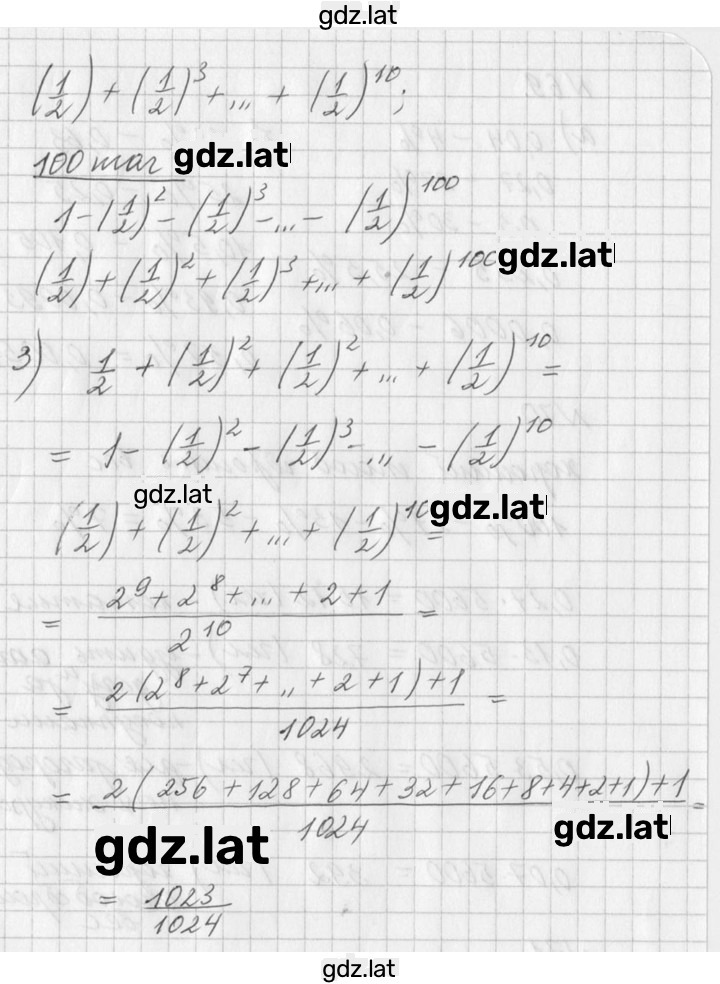 gdz.lat
(1/2) + (1/2)^3 + ... + (1/2)^10;
100 шаг gdz.lat
1 - (1/2)^2 - (1/2)^3 - ... - (1/2)^100
(1/2) + (1/2)^2 + (1/2)^3 + ... + (1/2)^100 gdz.lat
3) 1/2 + (1/2)^2 + (1/2)^2 + ... + (1/2)^10 =
= 1 - (1/2)^2 - (1/2)^3 - ... - (1/2)^10
gdz.lat
(1/2) + (1/2)^2 + ... + (1/2)^10 = gdz.lat
= (2^9 + 2^8 + ... + 2 + 1)/2^10 =
= (2(2^8 + 2^7 + .. + 2 + 1) + 1)/1024 =
= (2(256 + 128 + 64 + 32 + 16 + 8 + 4 + 2 + 1) + 1)/1024 =
gdz.lat gdz.lat
= 1023/1024
gdz.lat